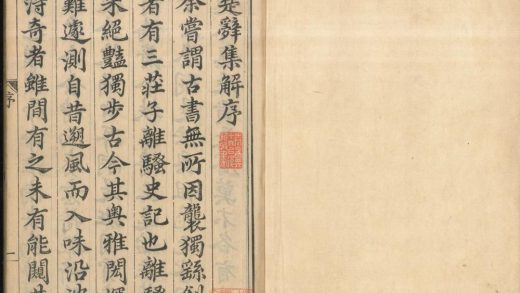 楚辭集解序
余嘗謂古書無所因襲獨繇創
者有三莊子離騷史記也離騷
未絕豔獨步古今其奧雅閎
難遽測自昔遡風而入味沿波
得奇者雖間有之未有能闖其
序
一